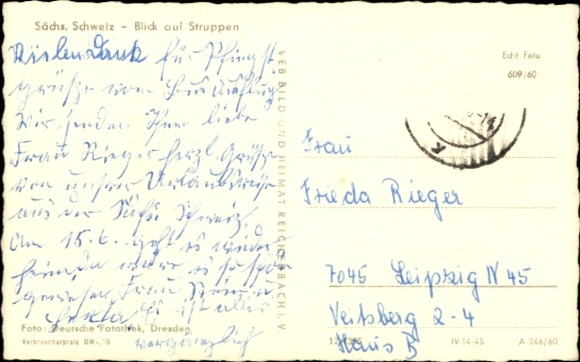 Sächs. Schweiz – Blick auf Struppen
Vielen Dank für Pfingst
grüße vom Bus Ausflug
Wir senden Ihnen liebe
Frau Rieger herzl. Grüße
von unsrer Urlaubsreise
aus der Sächs. Schweiz,
Am 15.6. geht es wieder
heim, da wäre es so schön
gewesen, Frau
Es ist alles
vergänglich
Foto: Deutsche Fotothek, Dresden
Verbraucherpreis DM -,15
VEB BILD UND HEIMAT REICHENBACH i. V.
Echt Foto
609/60
Frau
Frieda Rieger
7045 Leipzig N 45
Veitsberg 2-4
Haus B
IV-14-45 A 246/60